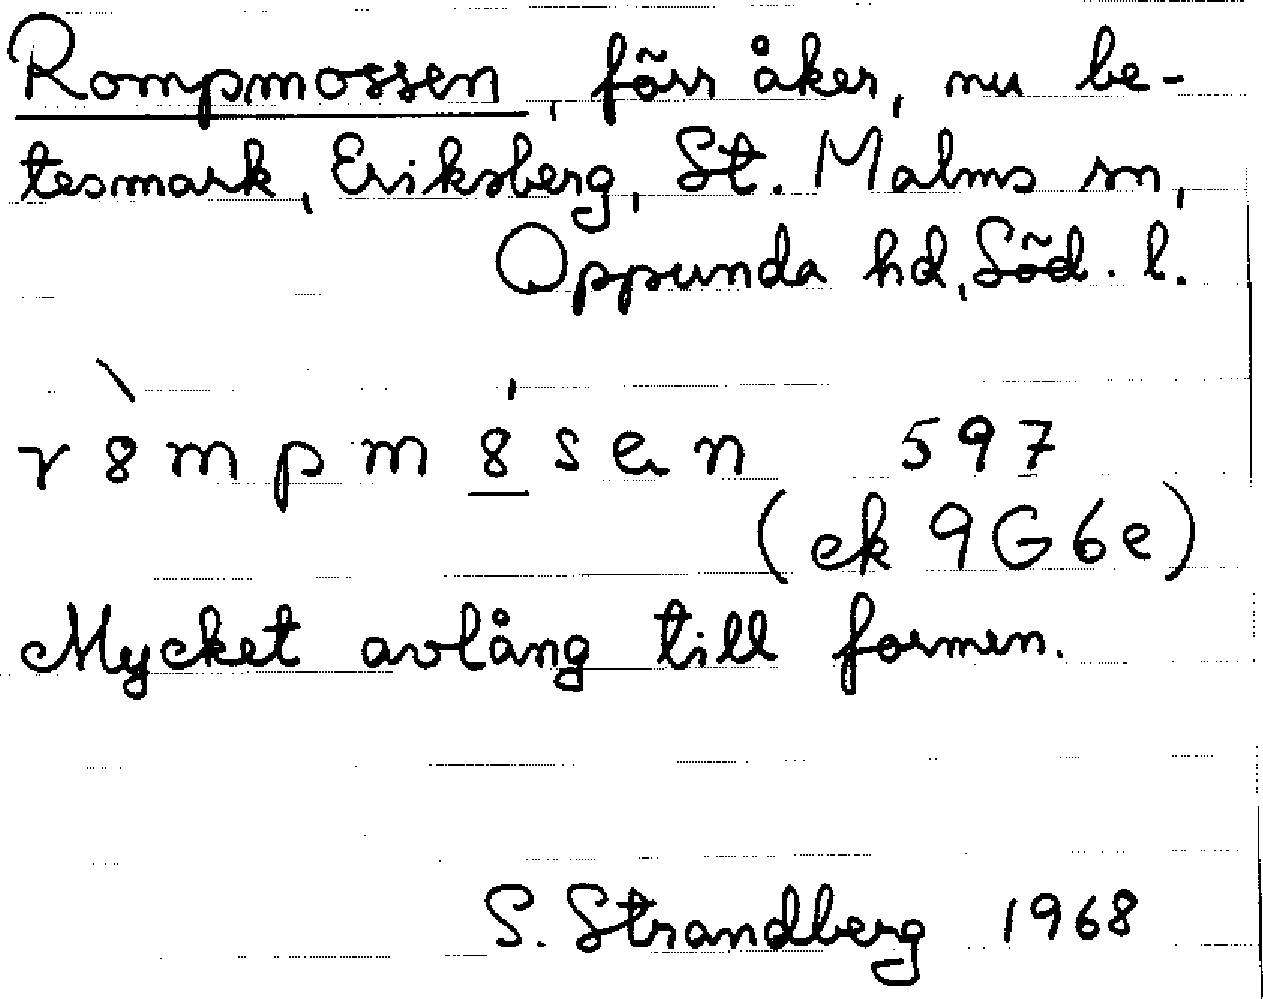 Rompmossen, förr åker, nu be-
tesmark, Eriksberg, St. Malms sn,
Oppunda hd, Söd. l.
r8mpm8sen 597
(ek 9G6e)
Mycket avlång till formen.
S. Strandberg 1968